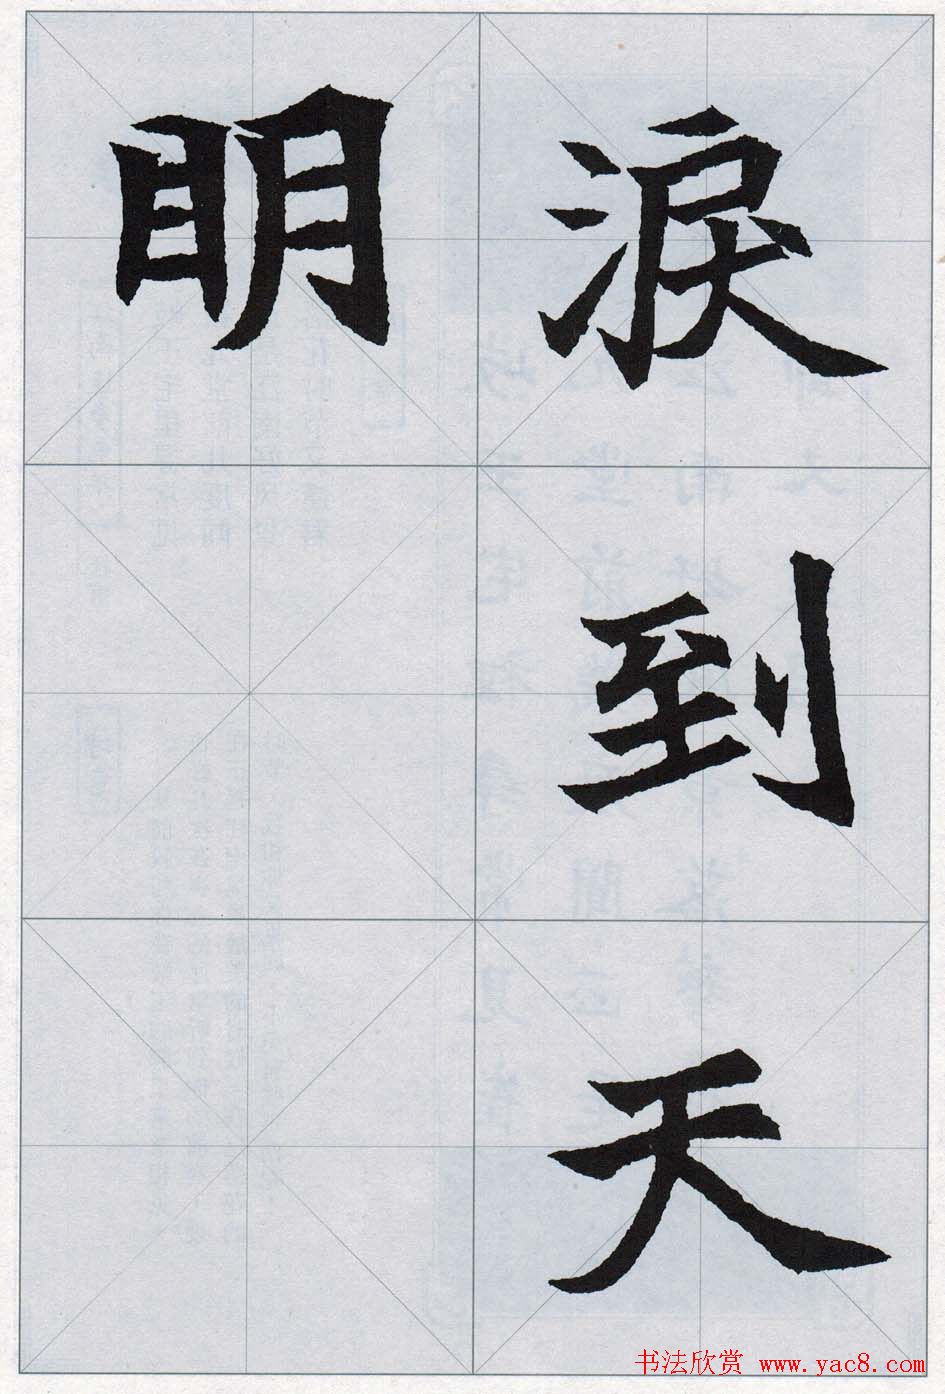 淚到天
明
书法欣赏 www.yac8.com